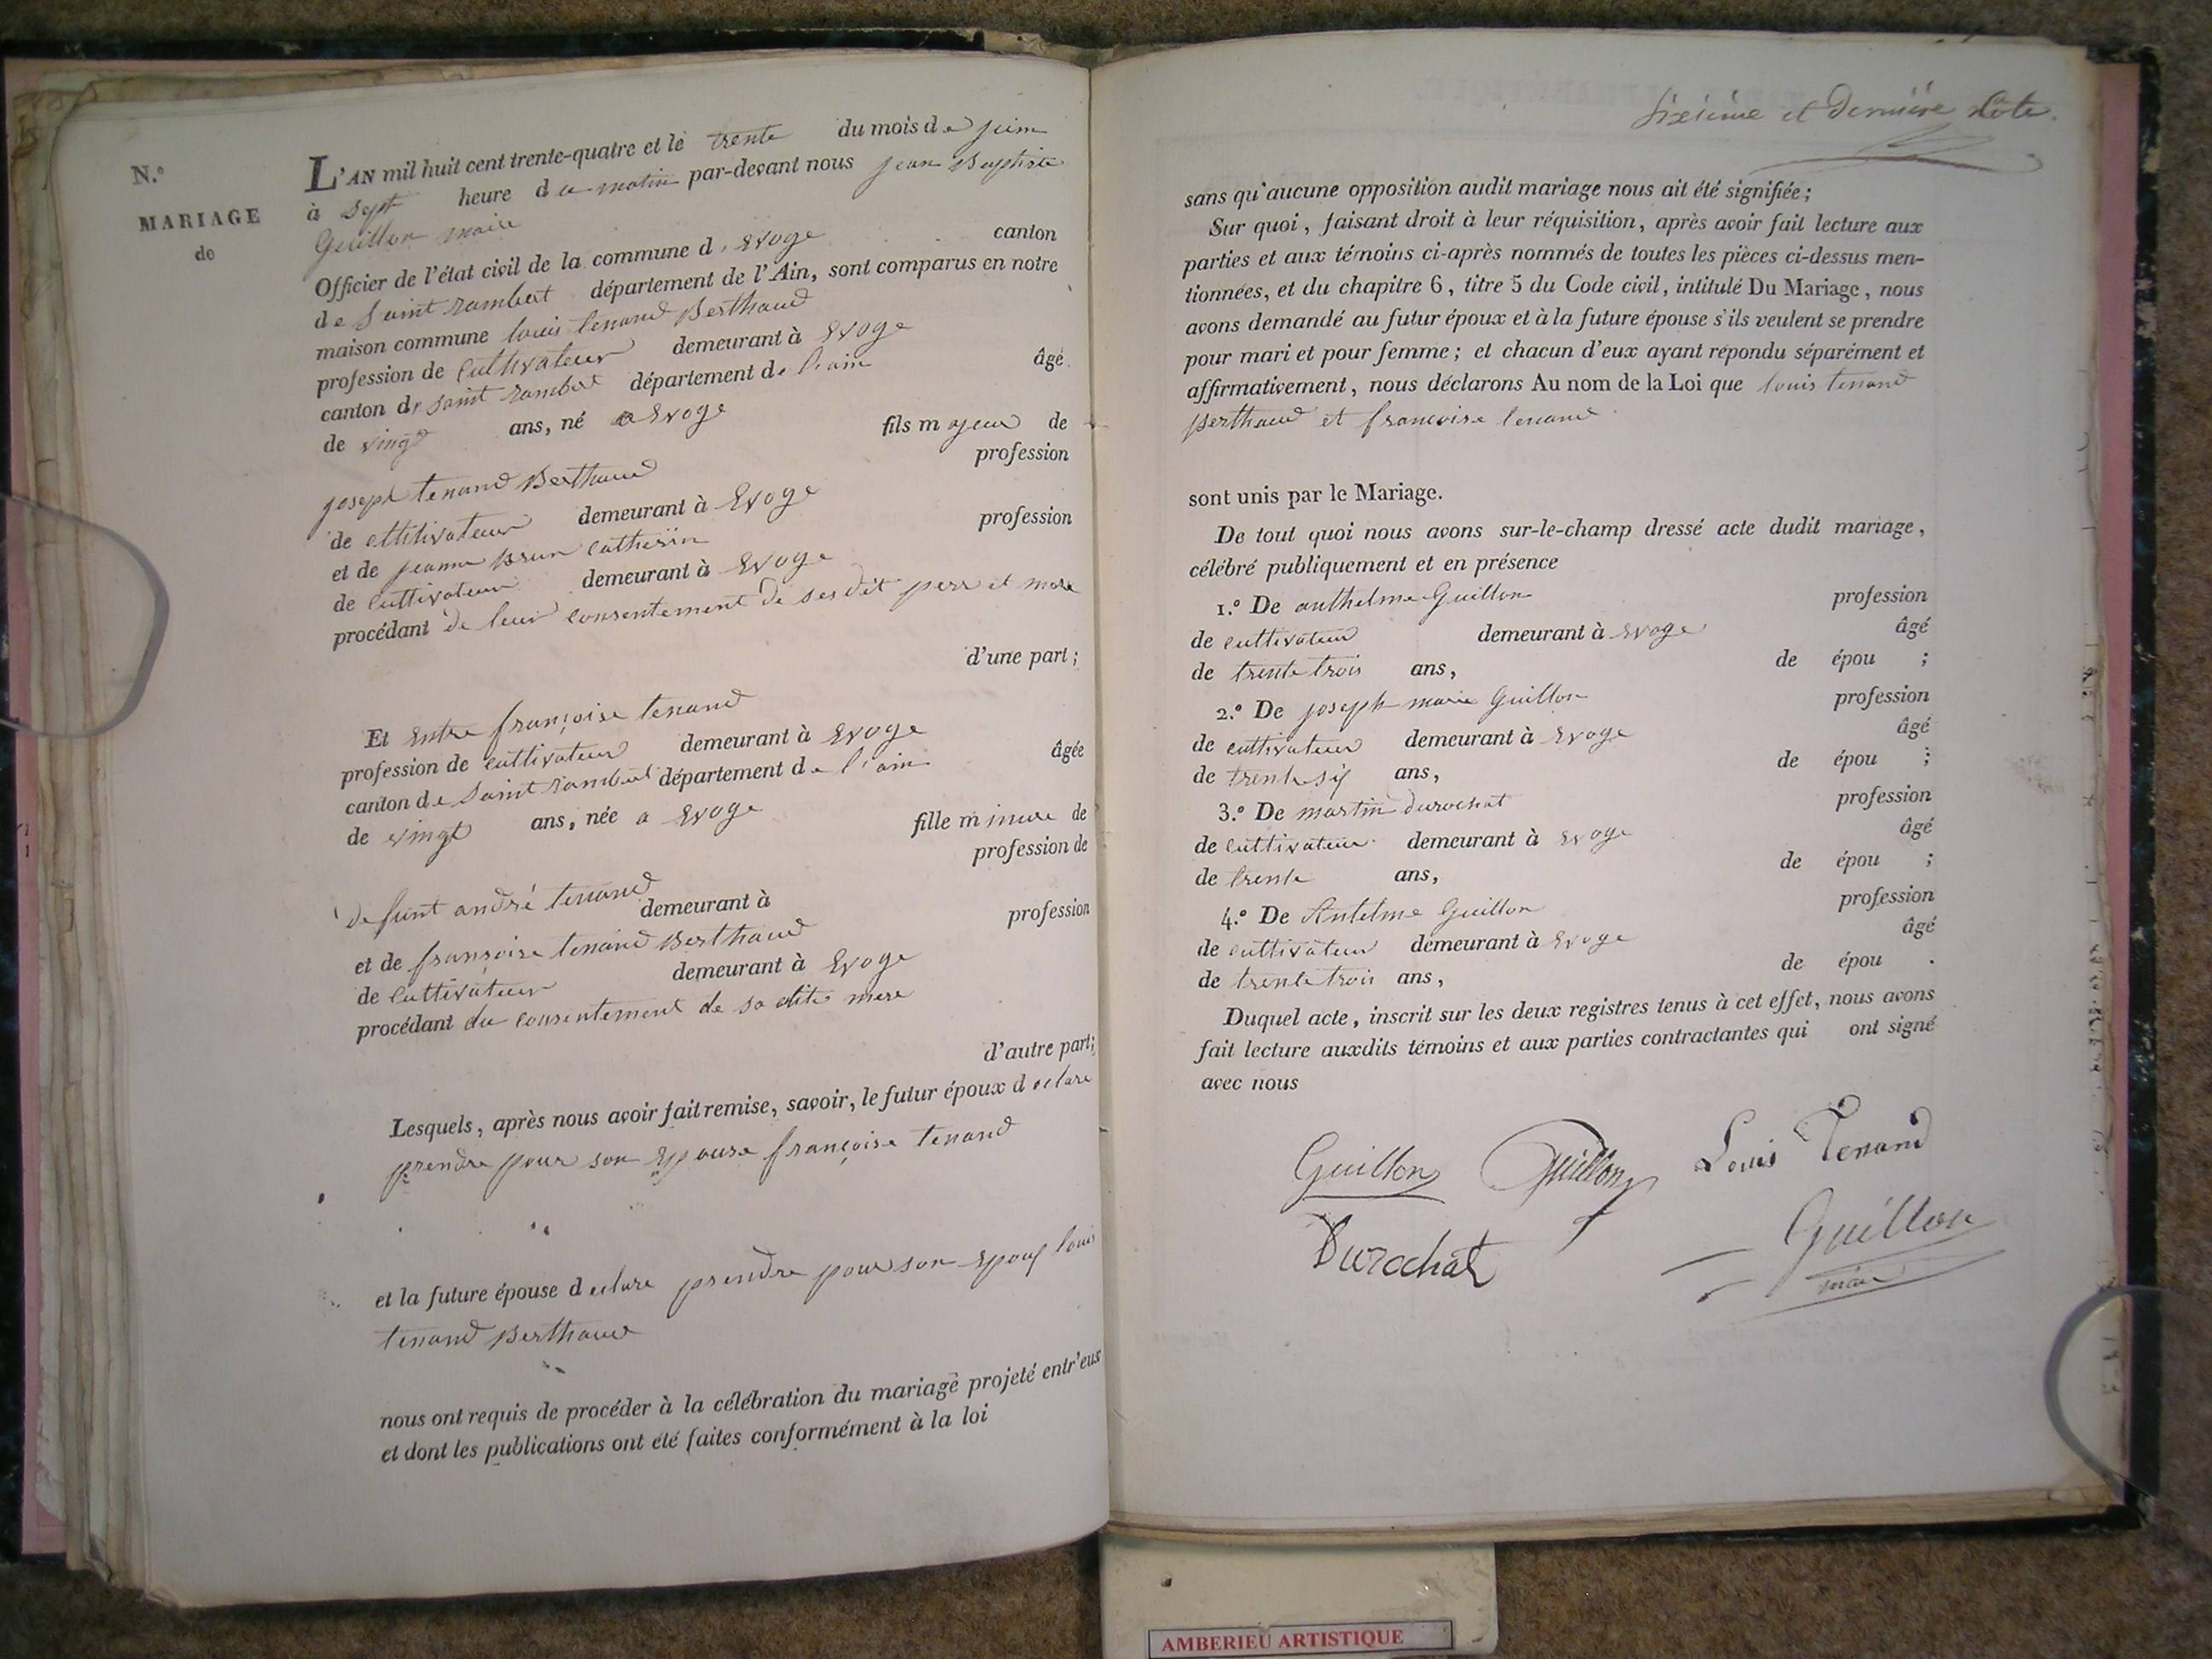 N.º
MARIAGE
de
L'AN mil huit cent trente-quatre et le trente du mois de juin
à sept heure du matin par-devant nous jean Baptiste
Guillon maire
Officier de l'état civil de la commune d'Evoge canton
de Saint rambert département de l'Ain, sont comparus en notre
maison commune louis tenand Berthaud
profession de cultivateur demeurant à Evoge
canton de saint rambert département de l'ain âgé
de vingt ans, né a Evoge fils majeur de
joseph tenand Berthaud profession
de cultivateur demeurant à Evoge
et de jeanne Brun catherin profession
de cultivateur demeurant à Evoge
procédant de leur consentement de ses dit pere et mere
d'une part;
Et Entre françoise tenand
profession de cultivateur demeurant à Evoge
canton de Saint rambert département de l'ain âgée
de vingt ans, née a Evoge fille mineure de
defunt andré tenand profession de
demeurant à
et de françoise tenand Berthaud profession
de cultivateur demeurant à Evoge
procédant du consentement de sa dite mere
d'autre part;
Lesquels, après nous avoir fait remise, savoir, le futur époux declare
prendre pour son Epouse françoise tenand
et la future épouse declare prendre pour son Epoux louis
tenand Berthaud
nous ont requis de procéder à la célébration du mariage projeté entr'eux
et dont les publications ont été faites conformément à la loi
Sixième et Dernière
sans qu'aucune opposition audit mariage nous ait été signifiée;
Sur quoi, faisant droit à leur réquisition, après avoir fait lecture aux
parties et aux témoins ci-après nommés de toutes les pièces ci-dessus men-
tionnées, et du chapitre 6, titre 5 du Code civil, intitulé Du Mariage, nous
avons demandé au futur époux et à la future épouse s'ils veulent se prendre
pour mari et pour femme; et chacun d'eux ayant répondu séparément et
affirmativement, nous déclarons Au nom de la Loi que louis tenand
Berthaud et françoise tenand
sont unis par le Mariage.
De tout quoi nous avons sur-le-champ dressé acte dudit mariage,
célébré publiquement et en présence
1.º De anthelme Guillon profession
de cultivateur demeurant à Evoge âgé
de trente trois ans, de épou ;
2.º De joseph marie Guillon profession
de cultivateur demeurant à Evoge âgé
de trente six ans, de épou ;
3.º De martin durochat profession
de cultivateur demeurant à Evoge âgé
de trente ans, de épou ;
4.º De Antelme Guillon profession
de cultivateur demeurant à Evoge âgé
de trente trois ans, de épou .
Duquel acte, inscrit sur les deux registres tenus à cet effet, nous avons
fait lecture auxdits témoins et aux parties contractantes qui ont signé
avec nous
Guillon Guillon Louis Tenand
Durochat Guillon
maire
AMBERIEU ARTISTIQUE